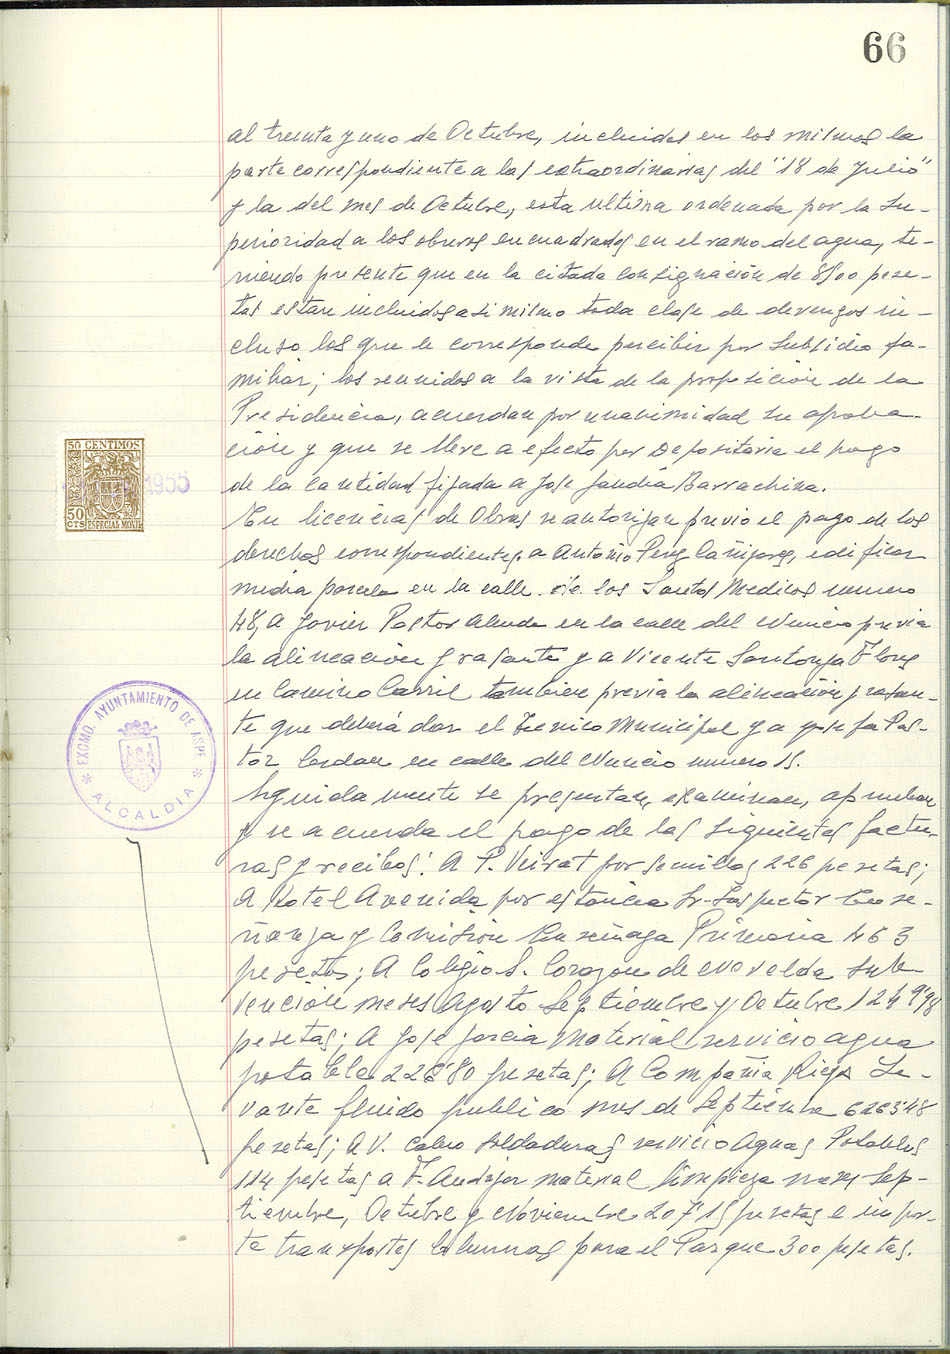 66
al treinta y uno de Octubre, incluidas en los mismos la
parte correspondiente a las extraordinarias del "18 de Julio"
y la del mes de Octubre, esta ultima ordenada por la Su-
perioridad a los obreros encuadrados en el ramo del agua, te-
niendo presente que en la citada consignación de 8500 pese-
tas estan incluidos asi mismo toda clase de devengos in-
cluso los que le corresponde percibir por Subsidio fa-
miliar; los reunidos a la vista de la proposición de la
Presidencia, acuerdan por unanimidad su aproba-
ción y que se lleve a efecto por Depositaria el pago
de la cantidad fijada a Jose Gandia Barrachina.
En licencias de Obras se autorizan previo el pago de los
derechos correspondientes, a Antonio Perez Cañizares, edificar
media parcela en la calle de los Santos Medicos numero
48, a Javier Pastor en la calle del Nuncio previa
la alineación y rasante y a Vicente Santonja Flores
en Camino Carril tambien previa la alineación y rasan-
te que deberá dar el Tecnico Municipal y a Josefa Pas-
tor Cerdan en calle del Nuncio numero 15.
Seguidamente se presentan, examinan, aprueban
y se acuerda el pago de las siguientes factu-
ras y recibos: A P. Veirat por semillas 226 pesetas;
A Hotel Avenida por estancia Sr. Inspector Ense-
ñanza y Comisión Enseñaza Primaria 463
pesetas; A Colegio S. Corazon de Novelda sub-
vención meses Agosto Septiembre y Octubre 1249'98
pesetas; A Jose Garcia material servicio agua
potable 228'80 pesetas; A Compañia Riegos Le-
vante fluido publico mes de Septiembre 6263'48
pesetas; A V. Calvo soldaduras servicio Aguas Potables
114 pesetas a F. Andujar material limpieza meses Sep-
tiembre, Octubre y Noviembre 207'15 pesetas e impor-
te transportes Columnas para el Parque 300 pesetas.
50 CENTIMOS
1955
50
CTS ESPECIAL MOVIL
EXCMO. AYUNTAMIENTO DE ASPE
* ALCALDIA *